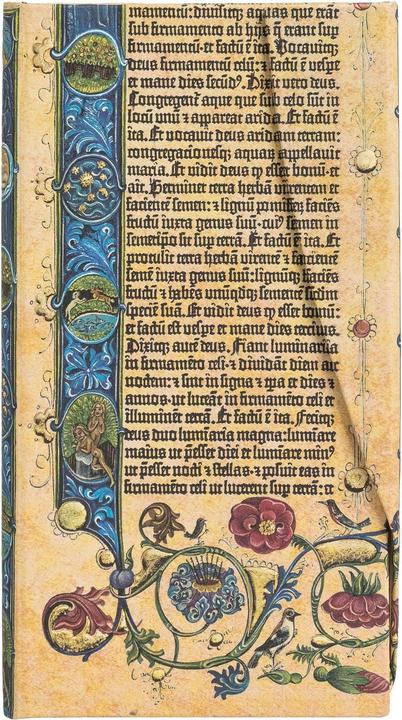 firmamentū: divisitq; aquas que erāt
sub firmamento ab hijs q̄ erant sup
firmamentū: et factū ē ita. Vocavitq;
deus firmamentū celū: ⁊ factū ē vespe
et mane dies secūd⁹. Dixit vero deus.
Congregent̄ aque que sub celo sūt in
locū unū ⁊ appareat arida. Et factū ē
ita. Et vocavit deus aridam terram:
congregacōesq; aquaꝝ appellavit
maria. Et vidit deus ꝙ esset bonū· et
ait. Germinet terra herbā virentem et
facientē semen: ⁊ lignū pomiferū faciēs
fructū iuxta genus suū· cui⁹ semen in
semetipo sit sup terrā. Et factū ē ita. Et
protulit terra herbā virentē ⁊ facientē
semē iuxta genus suū: lignūq; faciēs
fructū ⁊ habēs unūqdq; sementē scdm̄
speciē suā. Et vidit deus ꝙ esset bonū:
et factū est vespe et mane dies tercius.
Dixitq; autē deus. Fiant luminaria
in firmamēto celi· ⁊ dividāt diem ac
noctem: ⁊ sint in signa ⁊ tp̄a et dies ⁊
annos· ut luceāt in firmamēto celi et
illuminēt terrā. Et factū ē ita. Fecitq;
deus duo lumīaria magna: lumīare
maius ut p̄esset diei et lumīare min⁹
ut p̄esset nocti ⁊ stellas· ⁊ posuit eas in
firmamēto celi ut lucerent sup terrā: et